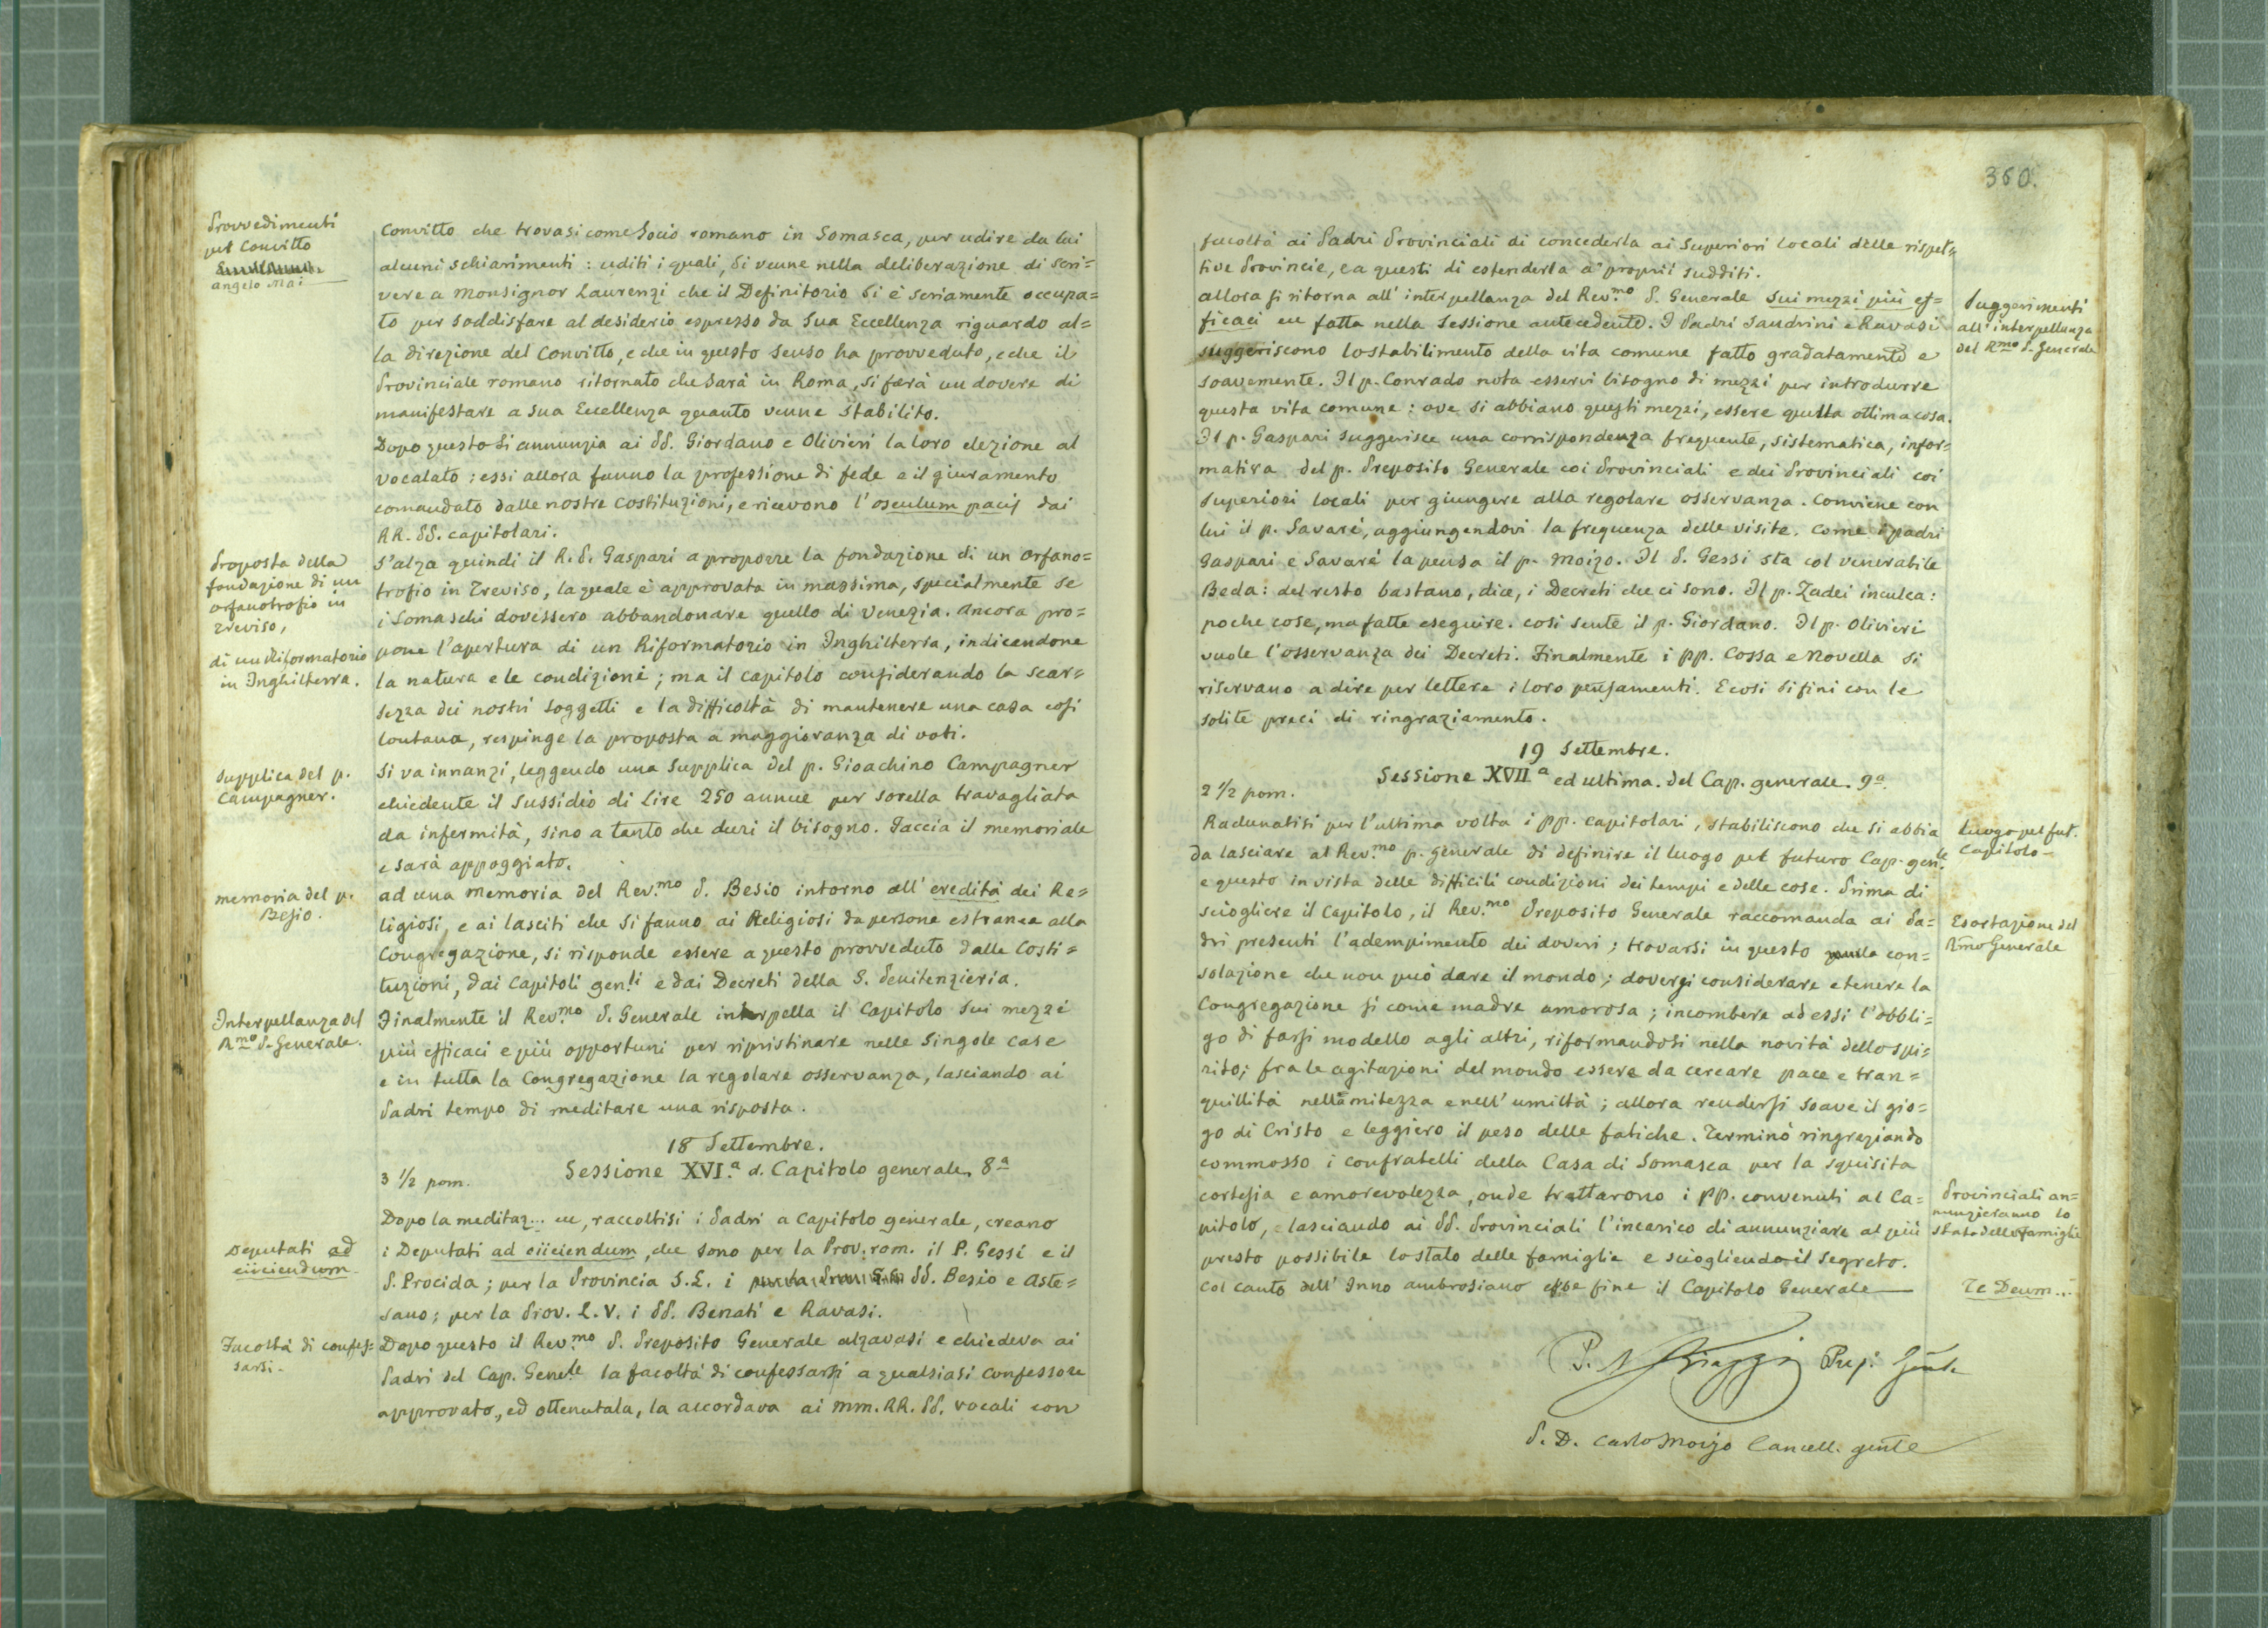 Provvedimenti
pel Convitto
Angelo Mai
Convitto che trovasi come Socio romano in Somasca, per udire da lui
alcuni schiarimenti: uditi i quali, si venne nella deliberazione di scri=
vere a Monsignor Laurenzi che il Definitorio si è seriamente occupa=
to per soddisfare al desiderio espresso da Sua Eccellenza riguardo al=
la direzione del Convitto, e che in questo senso ha provveduto, e che il
Provinciale romano ritornato che sarà in Roma, si farà un dovere di
manifestare a Sua Eccellenza quanto venne stabilito.
Dopo questo si annunzia ai PP. Giordano e Olivieri la loro elezione al
vocalato: essi allora fanno la professione di fede e il giuramento
comandato dalle nostre Costituzioni, e ricevono l'osculum pacis dai
RR. PP. capitolari.
Proposta della
fondazione di un
orfanotrofio in
Treviso,
di un Riformatorio
in Inghilterra.
S'alza quindi il R. P. Gaspari a proporre la fondazione di un orfano=
trofio in Treviso, la quale è approvata in massima, specialmente se
i Somaschi dovessero abbandonare quello di Venezia. Ancora pro=
pone l'apertura di un Riformatorio in Inghilterra, indicandone
la natura e le condizioni; ma il capitolo considerando la scar=
sezza dei nostri soggetti e la difficoltà di mantenere una casa così
lontana, respinge la proposta a maggioranza di voti.
Supplica del p.
Campagner.
Si va innanzi, leggendo una supplica del p. Gioachino Campagner
chiedente il sussidio di Lire 250 annue per sorella travagliata
da infermità, sino a tanto che duri il bisogno. Faccia il memoriale
e sarà appoggiato.
Memoria del p.
Besio.
Ad una memoria del Rev.mo P. Besio intorno all'eredità dei Re=
ligiosi, e ai lasciti che si fanno ai Religiosi da persone estranee alla
Congregazione, si risponde essere a questo provveduto dalle Costi=
tuzioni, dai Capitoli gen.li e dai Decreti della S. Penitenzieria.
Interpellanza del
R.mo P. Generale.
Finalmente il Rev.mo P. Generale interpella il Capitolo sui mezzi
più efficaci e più opportuni per ripristinare nelle singole case
e in tutta la Congregazione la regolare osservanza, lasciando ai
Padri tempo di meditare una risposta.
18 Settembre.
3 1/2 pom. Sessione XVI.a d. Capitolo generale, 8a
Dopo la meditaz... ec, raccoltisi i Padri a Capitolo generale, creano
Deputati ad
eiiciendum.
i Deputati ad eiiciendum, che sono per la Prov. rom. il P. Gessi e il
P. Procida; per la Provincia S.L. i PP. Besio e Aste=
sano; per la Prov. L.V. i PP. Benati e Ravasi.
Facoltà di confes=
sarsi.
Dopo questo il Rev.mo P. Preposito Generale alzavasi e chiedeva ai
Padri del Cap. Gene.le la facoltà di confessarsi a qualsiasi confessore
approvato, ed ottenutala, la accordava ai MM. RR. PP. vocali con
360.
facoltà ai Padri Provinciali di concederla ai Superiori locali delle rispet=
tive Provincie, e a questi di estenderla a' proprii sudditi.
Suggerimenti
all'interpellanza
del R.mo P. Generale
Allora si ritorna all'interpellanza del Rev.mo P. Generale sui mezzi più ef=
ficaci ec fatta nella sessione antecedente. I Padri Sandrini e Ravasi
suggeriscono lo stabilimento della vita comune fatto gradatamente e
soavemente. Il p. Conrado nota esservi bisogno di mezzi per introdurre
questa vita comune: ove si abbiano questi mezzi, essere quella ottima cosa.
Il p. Gaspari suggerisce una corrispondenza frequente, sistematica, infor=
mativa del p. Preposito Generale coi Provinciali e dei Provinciali coi
Superiori locali per giungere alla regolare osservanza. Conviene con
lui il p. Savaré, aggiungendovi la frequenza delle visite. Come i padri
Gaspari e Savaré la pensa il p. Moizo. Il P. Gessi sta col venerabile
Beda: del resto bastano, dice, i Decreti che ci sono. Il p. Zadei inculca:
poche cose, ma fatte eseguire. Così sente il p. Giordano. Il p. Olivieri
vuole l'osservanza dei Decreti. Finalmente i PP. Cossa e Novella si
riservano a dire per lettere i loro pensamenti. E così si finì con le
solite preci di ringraziamento.
19 Settembre.
2 1/2 pom. Sessione XVIIa ed ultima. del Cap. generale. 9a
Luogo pel fut.
Capitolo
Radunatisi per l'ultima volta i PP. capitolari, stabiliscono che si abbia
da lasciare al Rev.mo p. generale di definire il luogo pel futuro Cap. gen.le
e questo in vista delle difficili condizioni dei tempi e delle cose. Prima di
Esortazione del
R.mo Generale
sciogliere il Capitolo, il Rev.mo Preposito Generale raccomanda ai Pa=
dri presenti l'adempimento dei doveri; trovarsi in questo quella con=
solazione che non può dare il mondo; doversi considerare e tenere la
Congregazione si come madre amorosa; incombere ad essi l'obbli=
go di farsi modello agli altri, riformandosi nella novità dello spi=
rito; fra le agitazioni del mondo essere da cercare pace e tran=
quillità nella mitezza e nell'umiltà; allora rendersi soave il gio=
go di Cristo e leggiero il peso delle fatiche. Terminò ringraziando
commosso i confratelli della Casa di Somasca per la squisita
cortesia e amorevolezza, onde trattarono i PP. convenuti al Ca=
Provinciali an=
nunzieranno lo
stato delle famiglie
pitolo, e lasciando ai PP. Provinciali l'incarico di annunziare al più
presto possibile lo stato delle famiglie e sciogliendo il segreto.
Col canto dell'Inno ambrosiano ebbe fine il Capitolo Generale
Te Deum...
P. N. Biaggi Prep. Gen.le
P. D. Carlo Moizo Cancell. gen.le